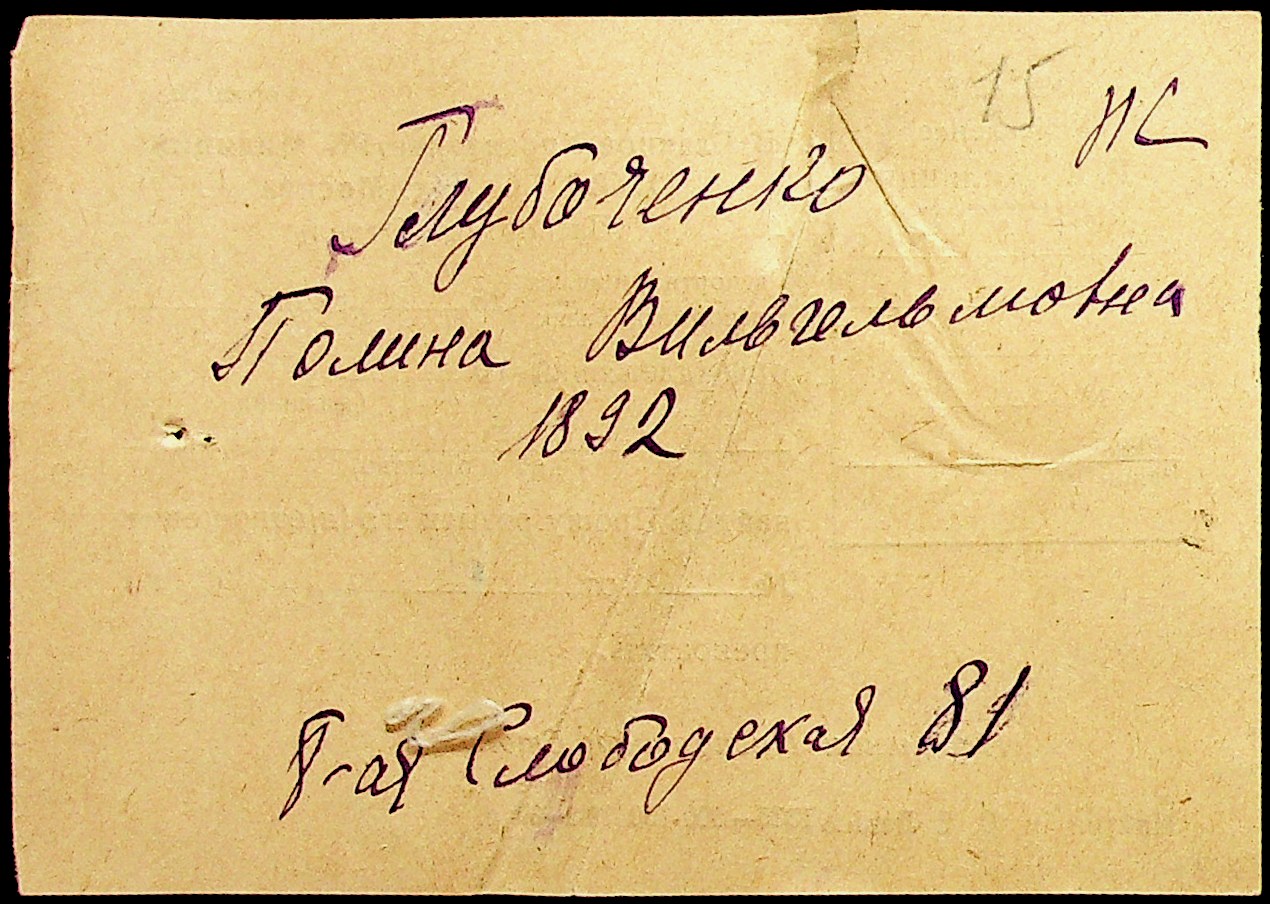 15
Глубоченко
Полина Вильгельмовна
1892
Слободская 81